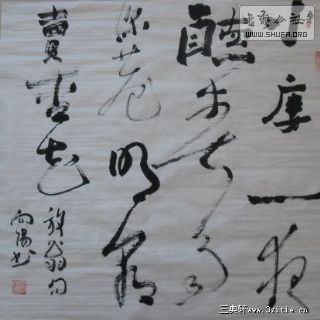 小楼一夜
聽春雨
深巷明朝
賣杏花
放翁句
向陽书
書藝公社
WWW.SHUFA.ORG
三典轩 www.3zitie.cn